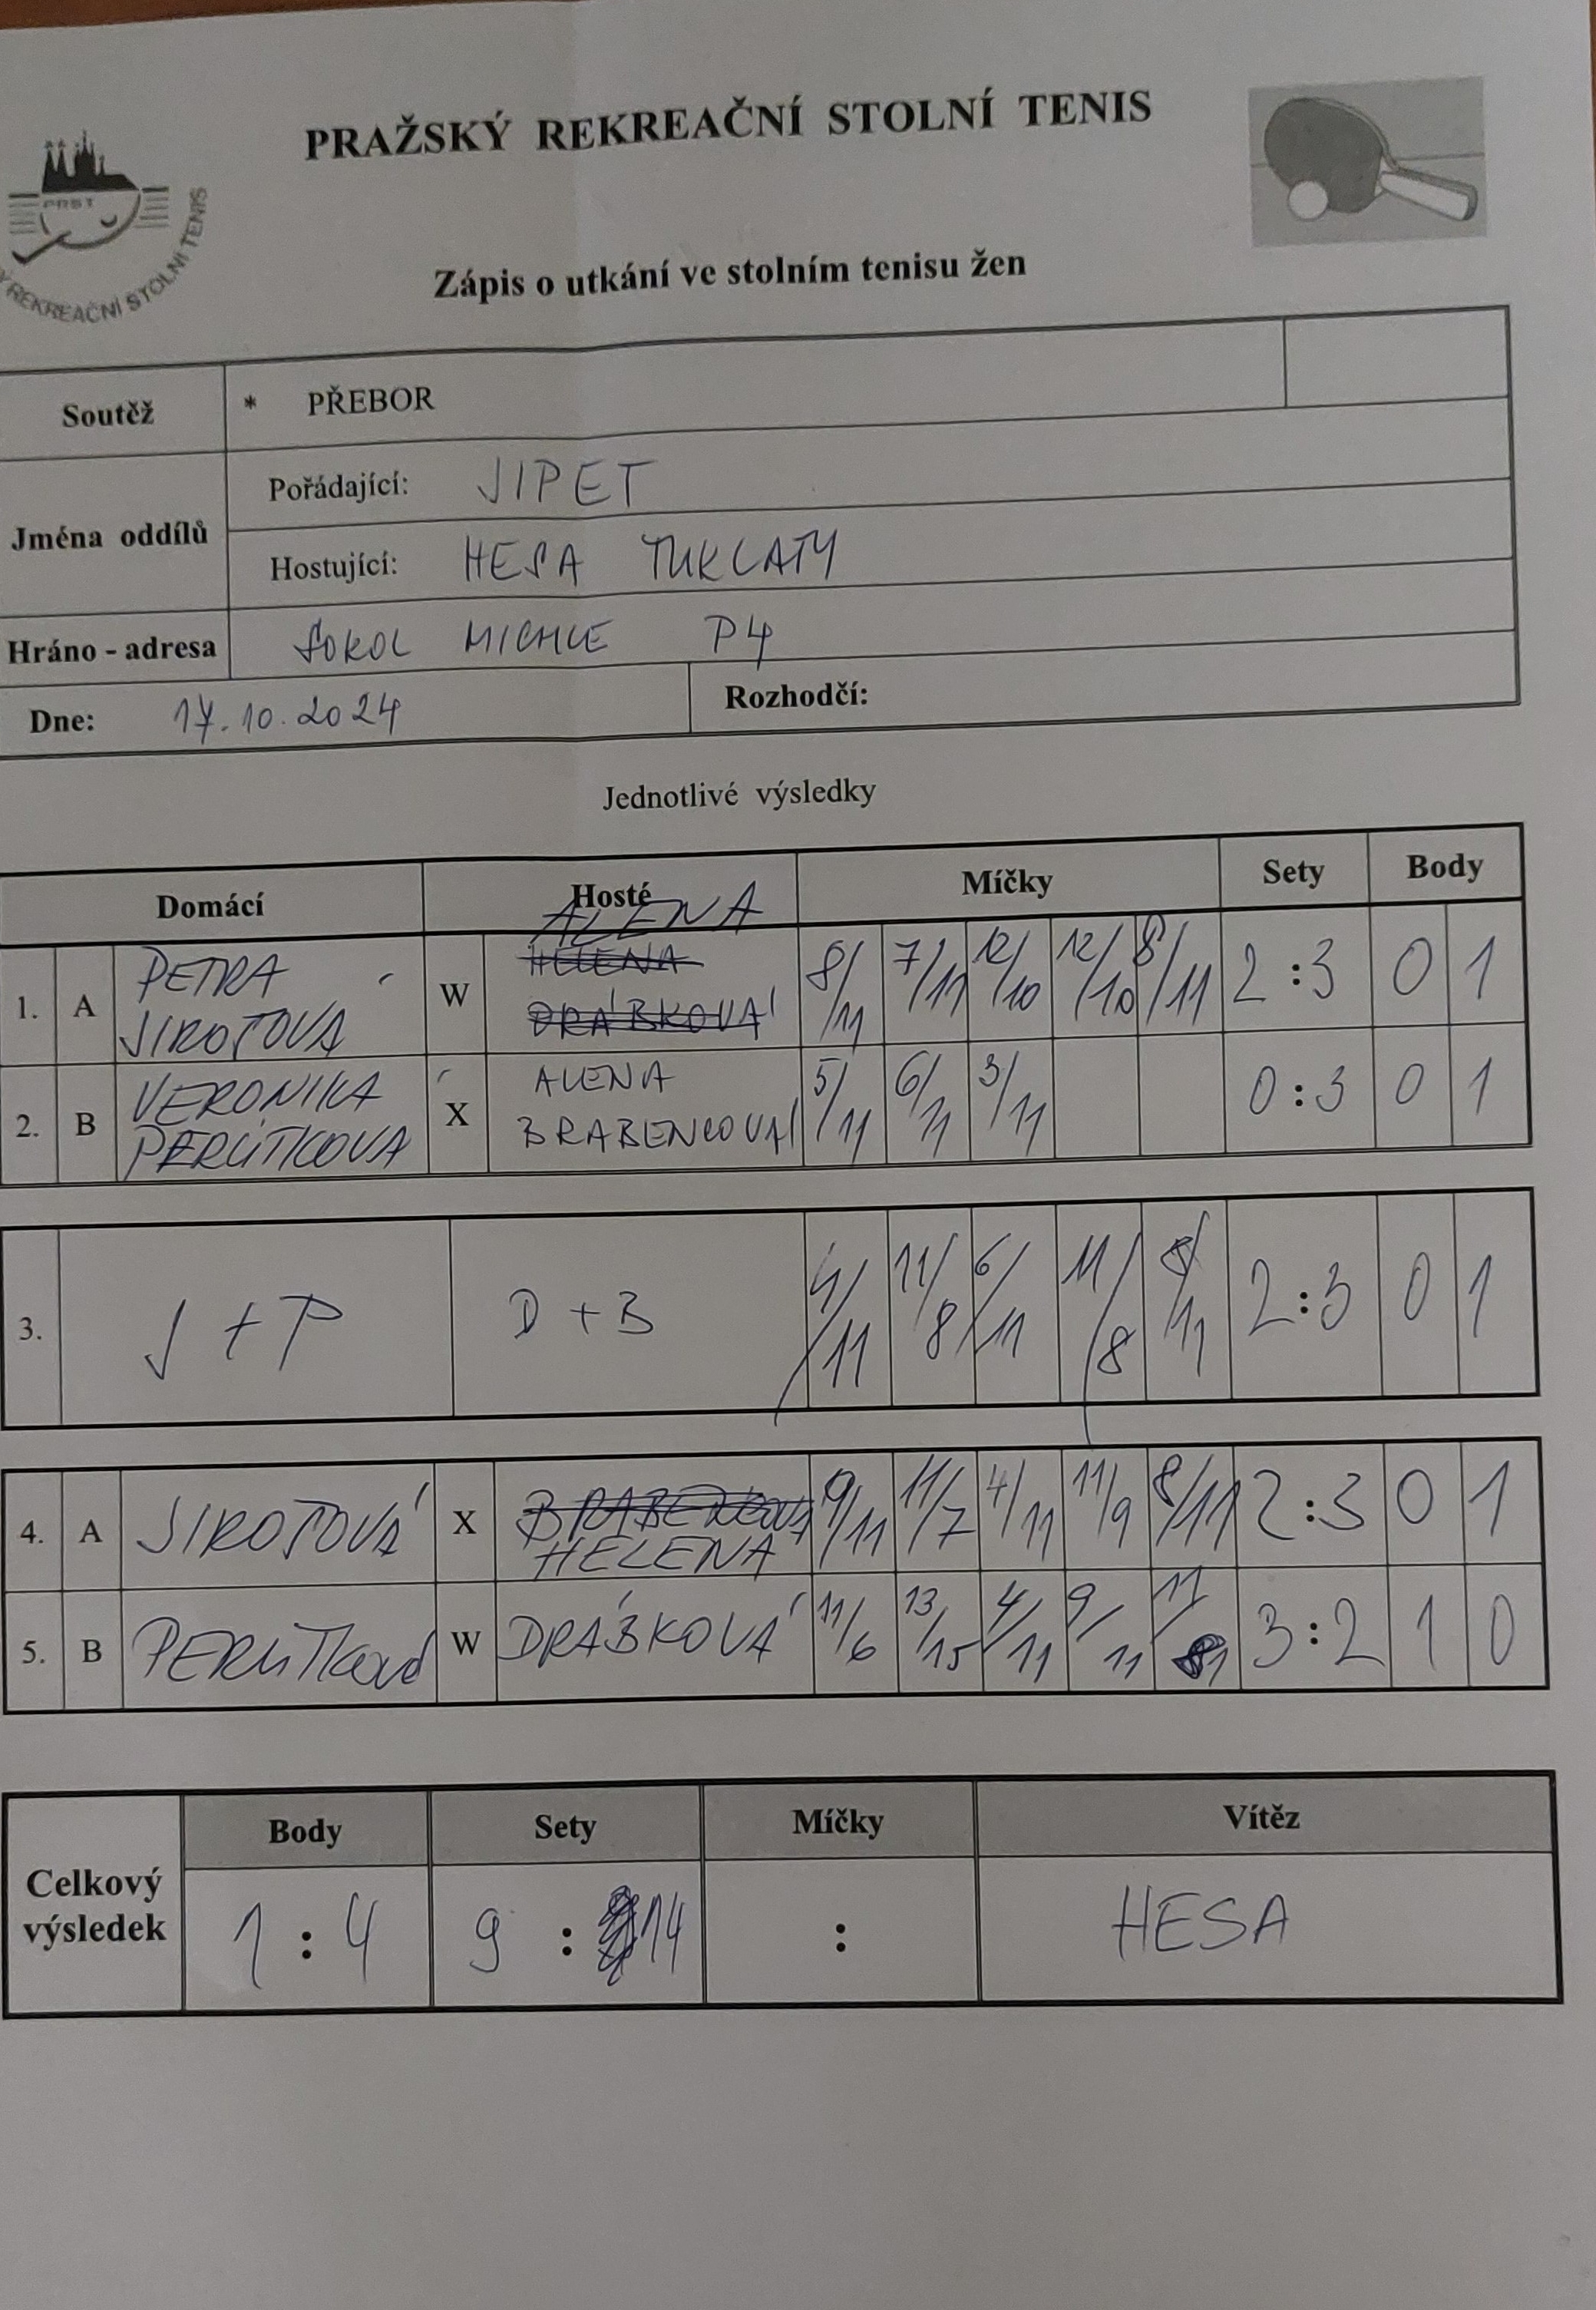 PRAŽSKÝ REKREAČNÍ STOLNÍ TENIS
PRST
REKREAČNÍ STOLNÍ TENIS
Zápis o utkání ve stolním tenisu žen
Soutěž * PŘEBOR
Jména oddílů
Pořádající: JIPET
Hostující: HESA TUKLATY
Hráno - adresa SOKOL MICHLE P4
Dne: 17.10.2024 Rozhodčí:
Jednotlivé výsledky
Domácí Hosté Míčky Sety Body
ALENA
1. A PETRA JIROTOVÁ W HELENA DRÁBKOVÁ 8/11 7/11 12/10 12/10 8/11 2:3 0 1
2. B VERONIKA PERUTKOVÁ X ALENA BRABENCOVÁ 5/11 6/11 3/11 0:3 0 1
3. J + P D + B 4/11 11/8 6/11 11/8 8/11 2:3 0 1
4. A JIROTOVÁ X HELENA 9/11 11/7 4/11 11/9 8/11 2:3 0 1
5. B PERUTKOVÁ W DRÁBKOVÁ 11/6 13/15 4/11 9/11 11/ 3:2 1 0
Celkový výsledek
Body Sety Míčky Vítěz
1:4 9:14 : HESA